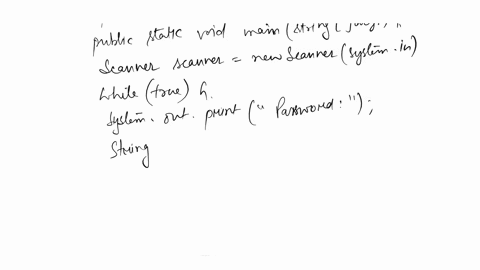 public static void main (string [
Scanner scanner = new Scanner (system.in)
while (true) {
System. out. print (" Password: ");
String